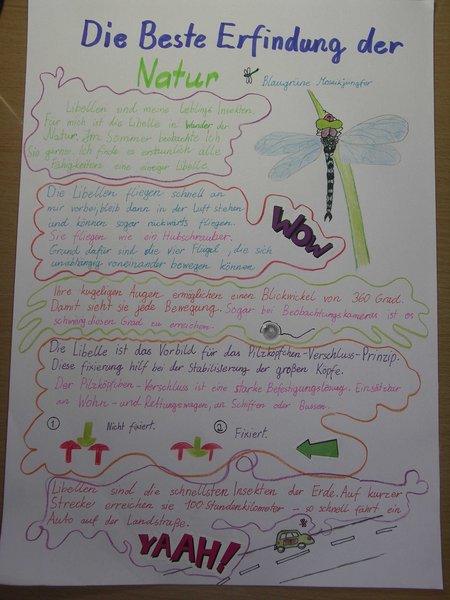 Die Beste Erfindung der
Natur
Blaugrüne Mosaikjungfer
Libellen sind meine Lieblings Insekten.
Für mich ist die Libelle in Wunder der
Natur. Im Sommer beobachte Ich
Sie gerne. Ich finde es erstaunlich alle
Fähigkeiten eine einziger Libelle.
Die Libellen fliegen schnell an
mir vorbei, bleib dann in der Luft stehen
und können sogar rückwärts fliegen.
Sie fliegen wie ein Hubschrauber.
Grund dafür sind die vier Flügel, die sich
unabhängig voneinander bewegen können
WOW
Ihre kugeligen Augen ermöglichen einen Blickwickel von 360 Grad.
Damit sieht sie jede Bewegung. Sogar bei Beobachtungskameras ist es
schwierig diesen Grad zu erreichen.
Die Libelle ist das Vorbild für das Pilzköpfchen-Verschluss-Prinzip.
Diese fixierung hilf bei der Stabilisierung der großen Köpfe.
Der Pilzköpfchen-Verschluss ist eine starke Befestigungslösung. Einsätzbar
an Wohn- und Rettungswagen, an Schiffen oder Bussen.
1 Nicht fixiert. 2 Fixiert.
Libellen sind die schnellsten Insekten der Erde. Auf kurzer
Strecke erreichen sie 100 Stundenkilometer – so schnell fährt ein
Auto auf der Landstraße.
YAAH!